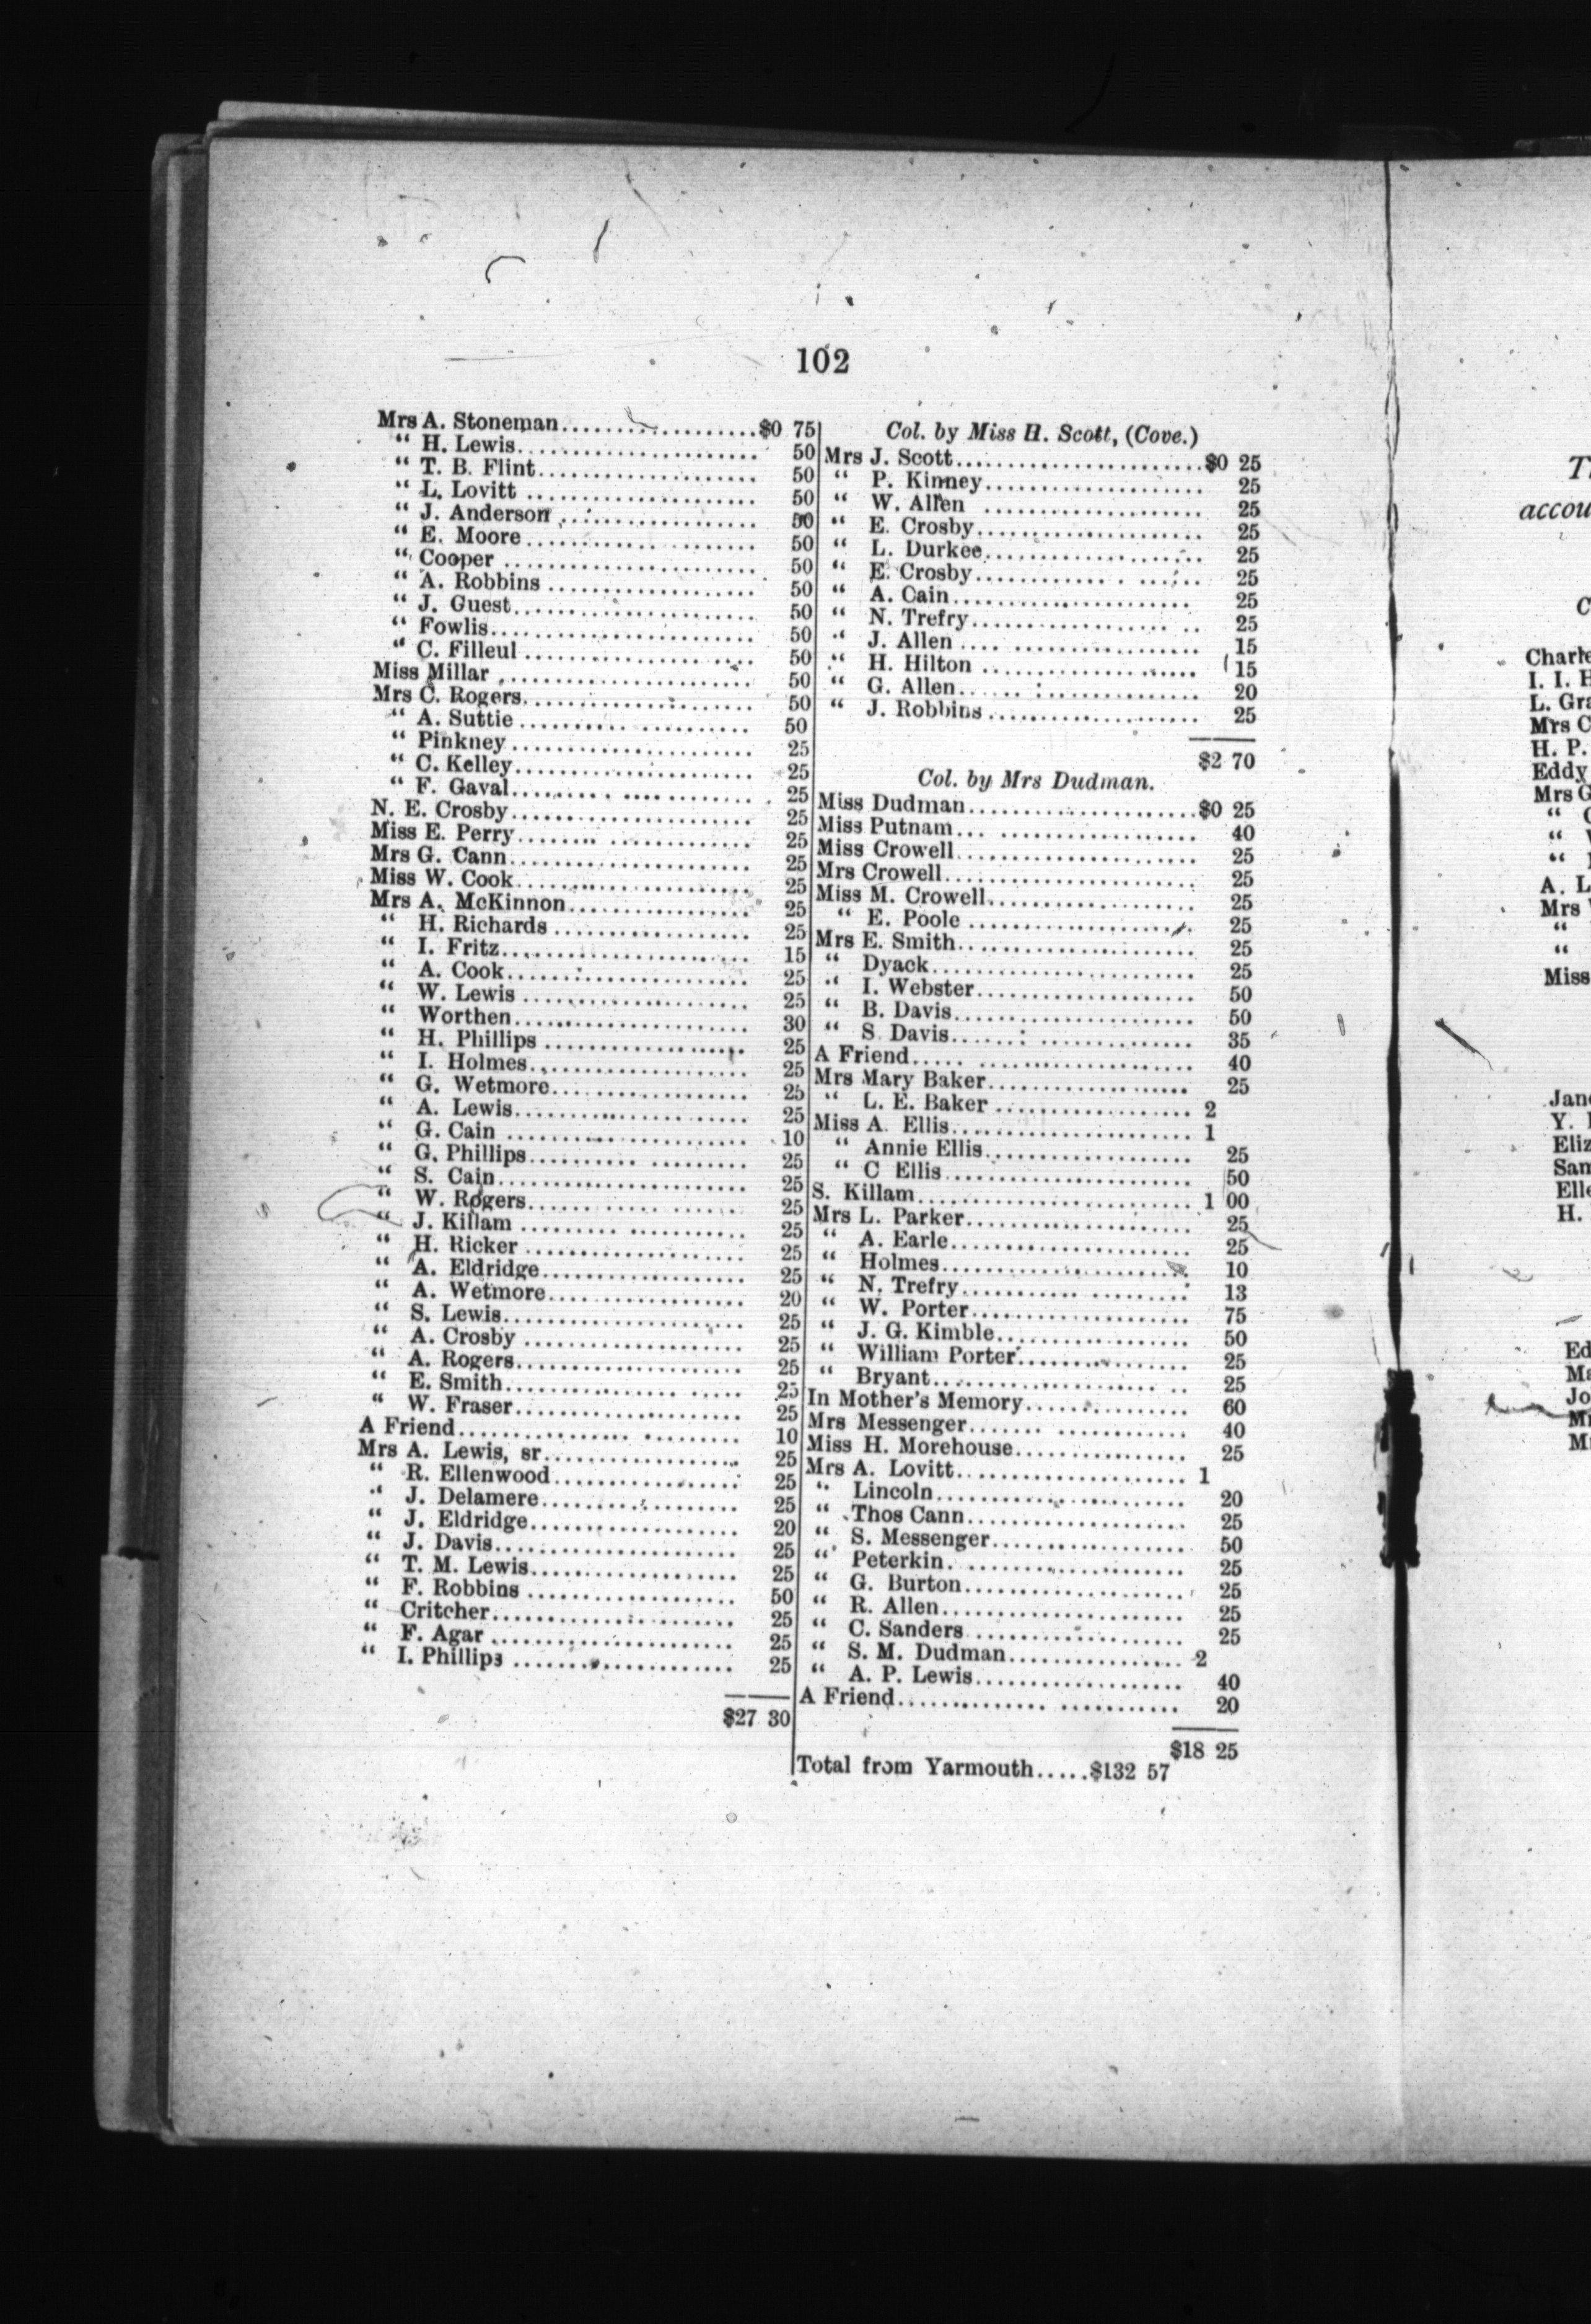 102
Mrs A. Stoneman....................$0 75
“ H. Lewis........................ 50
“ T. B. Flint...................... 50
“ L. Lovitt ...................... 50
“ J. Anderson .................... 50
“ E. Moore....................... 50
“ Cooper ......................... 50
“ A. Robbins ..................... 50
“ J. Guest........................ 50
“ Fowlis.......................... 50
“ C. Filleul ...................... 50
Miss Millar ........................ 50
Mrs C. Rogers....................... 50
“ A. Suttie....................... 50
“ Pinkney........................ 25
“ C. Kelley....................... 25
“ F. Gaval........................ 25
N. E. Crosby........................ 25
Miss E. Perry....................... 25
Mrs G. Cann......................... 25
Miss W. Cook........................ 25
Mrs A. McKinnon..................... 25
“ H. Richards .................... 25
“ I. Fritz........................ 15
“ A. Cook......................... 25
“ W. Lewis ....................... 25
“ Worthen......................... 30
“ H. Phillips .................... 25
“ I. Holmes....................... 25
“ G. Wetmore...................... 25
“ A. Lewis........................ 25
“ G. Cain ........................ 10
“ G. Phillips..................... 25
“ S. Cain......................... 25
“ W. Rogers....................... 25
“ J. Killam ...................... 25
“ H. Ricker ...................... 25
“ A. Eldridge..................... 25
“ A. Wetmore...................... 20
“ S. Lewis........................ 25
“ A. Crosby ...................... 25
“ A. Rogers....................... 25
“ E. Smith........................ 25
“ W. Fraser....................... 25
A Friend............................ 10
Mrs A. Lewis, sr.................... 25
“ R. Ellenwood.................... 25
“ J. Delamere..................... 25
“ J. Eldridge..................... 20
“ J. Davis........................ 25
“ T. M. Lewis..................... 25
“ F. Robbins ..................... 50
“ Critcher........................ 25
“ F. Agar ........................ 25
“ I. Phillips .................... 25
$27 30
Col. by Miss H. Scott, (Cove.)
Mrs J. Scott........................$0 25
“ P. Kinney....................... 25
“ W. Allen ....................... 25
“ E. Crosby....................... 25
“ L. Durkee....................... 25
“ E. Crosby....................... 25
“ A. Cain......................... 25
“ N. Trefry....................... 25
“ J. Allen ....................... 15
“ H. Hilton ...................... 15
“ G. Allen........................ 20
“ J. Robbins...................... 25
$2 70
Col. by Mrs Dudman.
Miss Dudman.........................$0 25
Miss Putnam......................... 40
Miss Crowell........................ 25
Mrs Crowell......................... 25
Miss M. Crowell..................... 25
“ E. Poole ....................... 25
Mrs E. Smith........................ 25
“ Dyack........................... 25
“ I. Webster...................... 50
“ B. Davis........................ 50
“ S. Davis........................ 35
A Friend............................ 40
Mrs Mary Baker...................... 25
“ L. E. Baker .................... 2
Miss A. Ellis....................... 1
“ Annie Ellis..................... 25
“ C Ellis......................... 50
S. Killam........................... 1 00
Mrs L. Parker....................... 25
“ A. Earle........................ 25
“ Holmes.......................... 10
“ N. Trefry....................... 13
“ W. Porter....................... 75
“ J. G. Kimble.................... 50
“ William Porter.................. 25
“ Bryant.......................... 25
In Mother's Memory.................. 60
Mrs Messenger....................... 40
Miss H. Morehouse................... 25
Mrs A. Lovitt....................... 1
“ Lincoln......................... 20
“ Thos Cann....................... 25
“ S. Messenger.................... 50
“ Peterkin........................ 25
“ G. Burton....................... 25
“ R. Allen........................ 25
“ C. Sanders...................... 25
“ S. M. Dudman.................... 2
“ A. P. Lewis..................... 40
A Friend............................ 20
$18 25
Total from Yarmouth.....$132 57
accou
I. I. H
L. Gra
Mrs C
H. P.
Eddy
Mrs G
A. L
Mrs
“
“
Miss
Jan
Y.
Eliz
Sam
Elle
H.
Ed
Ma
Jo